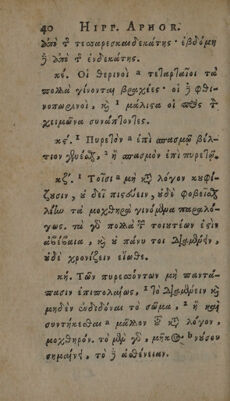 40 HIPP. APHOR.
ὑπὸ τ̃ τεσσαρεσκαιδεκάτης· ἑβδόμη
ὑπὸ τ̃ ἑνδεκάτης.
κέ. Οἱ θερινοὶ τεταρταῖοι τὰ
πολλὰ γίνονται βραχέες· οἱ ϳ φθι-
νοπωρινοὶ, καὶ μάλιστα οἱ πρὸς τ̃
χειμῶνα συνάπτοντες.
κϛ. Πυρετὸν ἐπὶ σπασμῷ βέλ-
τιον γενέσθαι, ἢ σπασμὸν ἐπὶ πυρετῷ.
κζ. Τοῖσι μὴ κατὰ λόγον κουφί-
ζουσιν, οὐ δεῖ πιστεύειν, οὐδὲ φοβεῖσθαι
λίην τὰ μοχθηρὰ γινόμενα παραλό-
γως. τὰ γὸ πολλὰ τ̃ τοιουτέων ἐστὶν
ἀβέβαια, καὶ οὐ πάνυ τοι διαμένειν,
οὐδὲ χρονίζειν εἴωθε.
κή. Τῶν πυρεσσόντων μὴ παντά-
πασιν ἐπιπολαίως, τὸ διαμένειν καὶ
μηδὲν ἐνδιδόναι τὸ σῶμα, ἢ καὶ
συντήκεσθαι μᾶλλον τ̃ κατὰ λόγον,
μοχθηρόν. τὸ μὲν γὸ, μῆκος νούσου
σημαίνει, τὸ ϳ ἀσθένειαν.